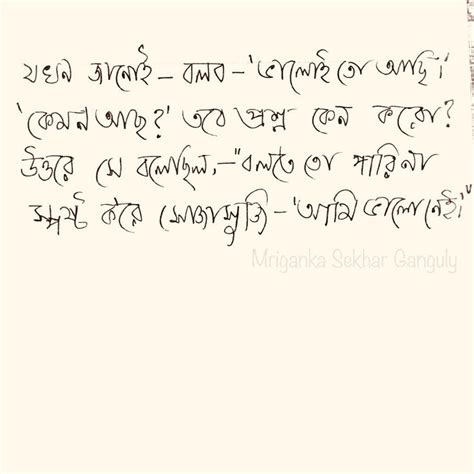 যখন জানোই – বলব – 'ভালোই তো আছি।'
'কেমন আছ?' তবে প্রশ্ন কেন করো?
উত্তরে সে বলেছিল, – "বলতে তো পারিনা
স্পষ্ট করে সোজাসুজি – 'আমি ভালো নেই।'"
Mriganka Sekhar Ganguly